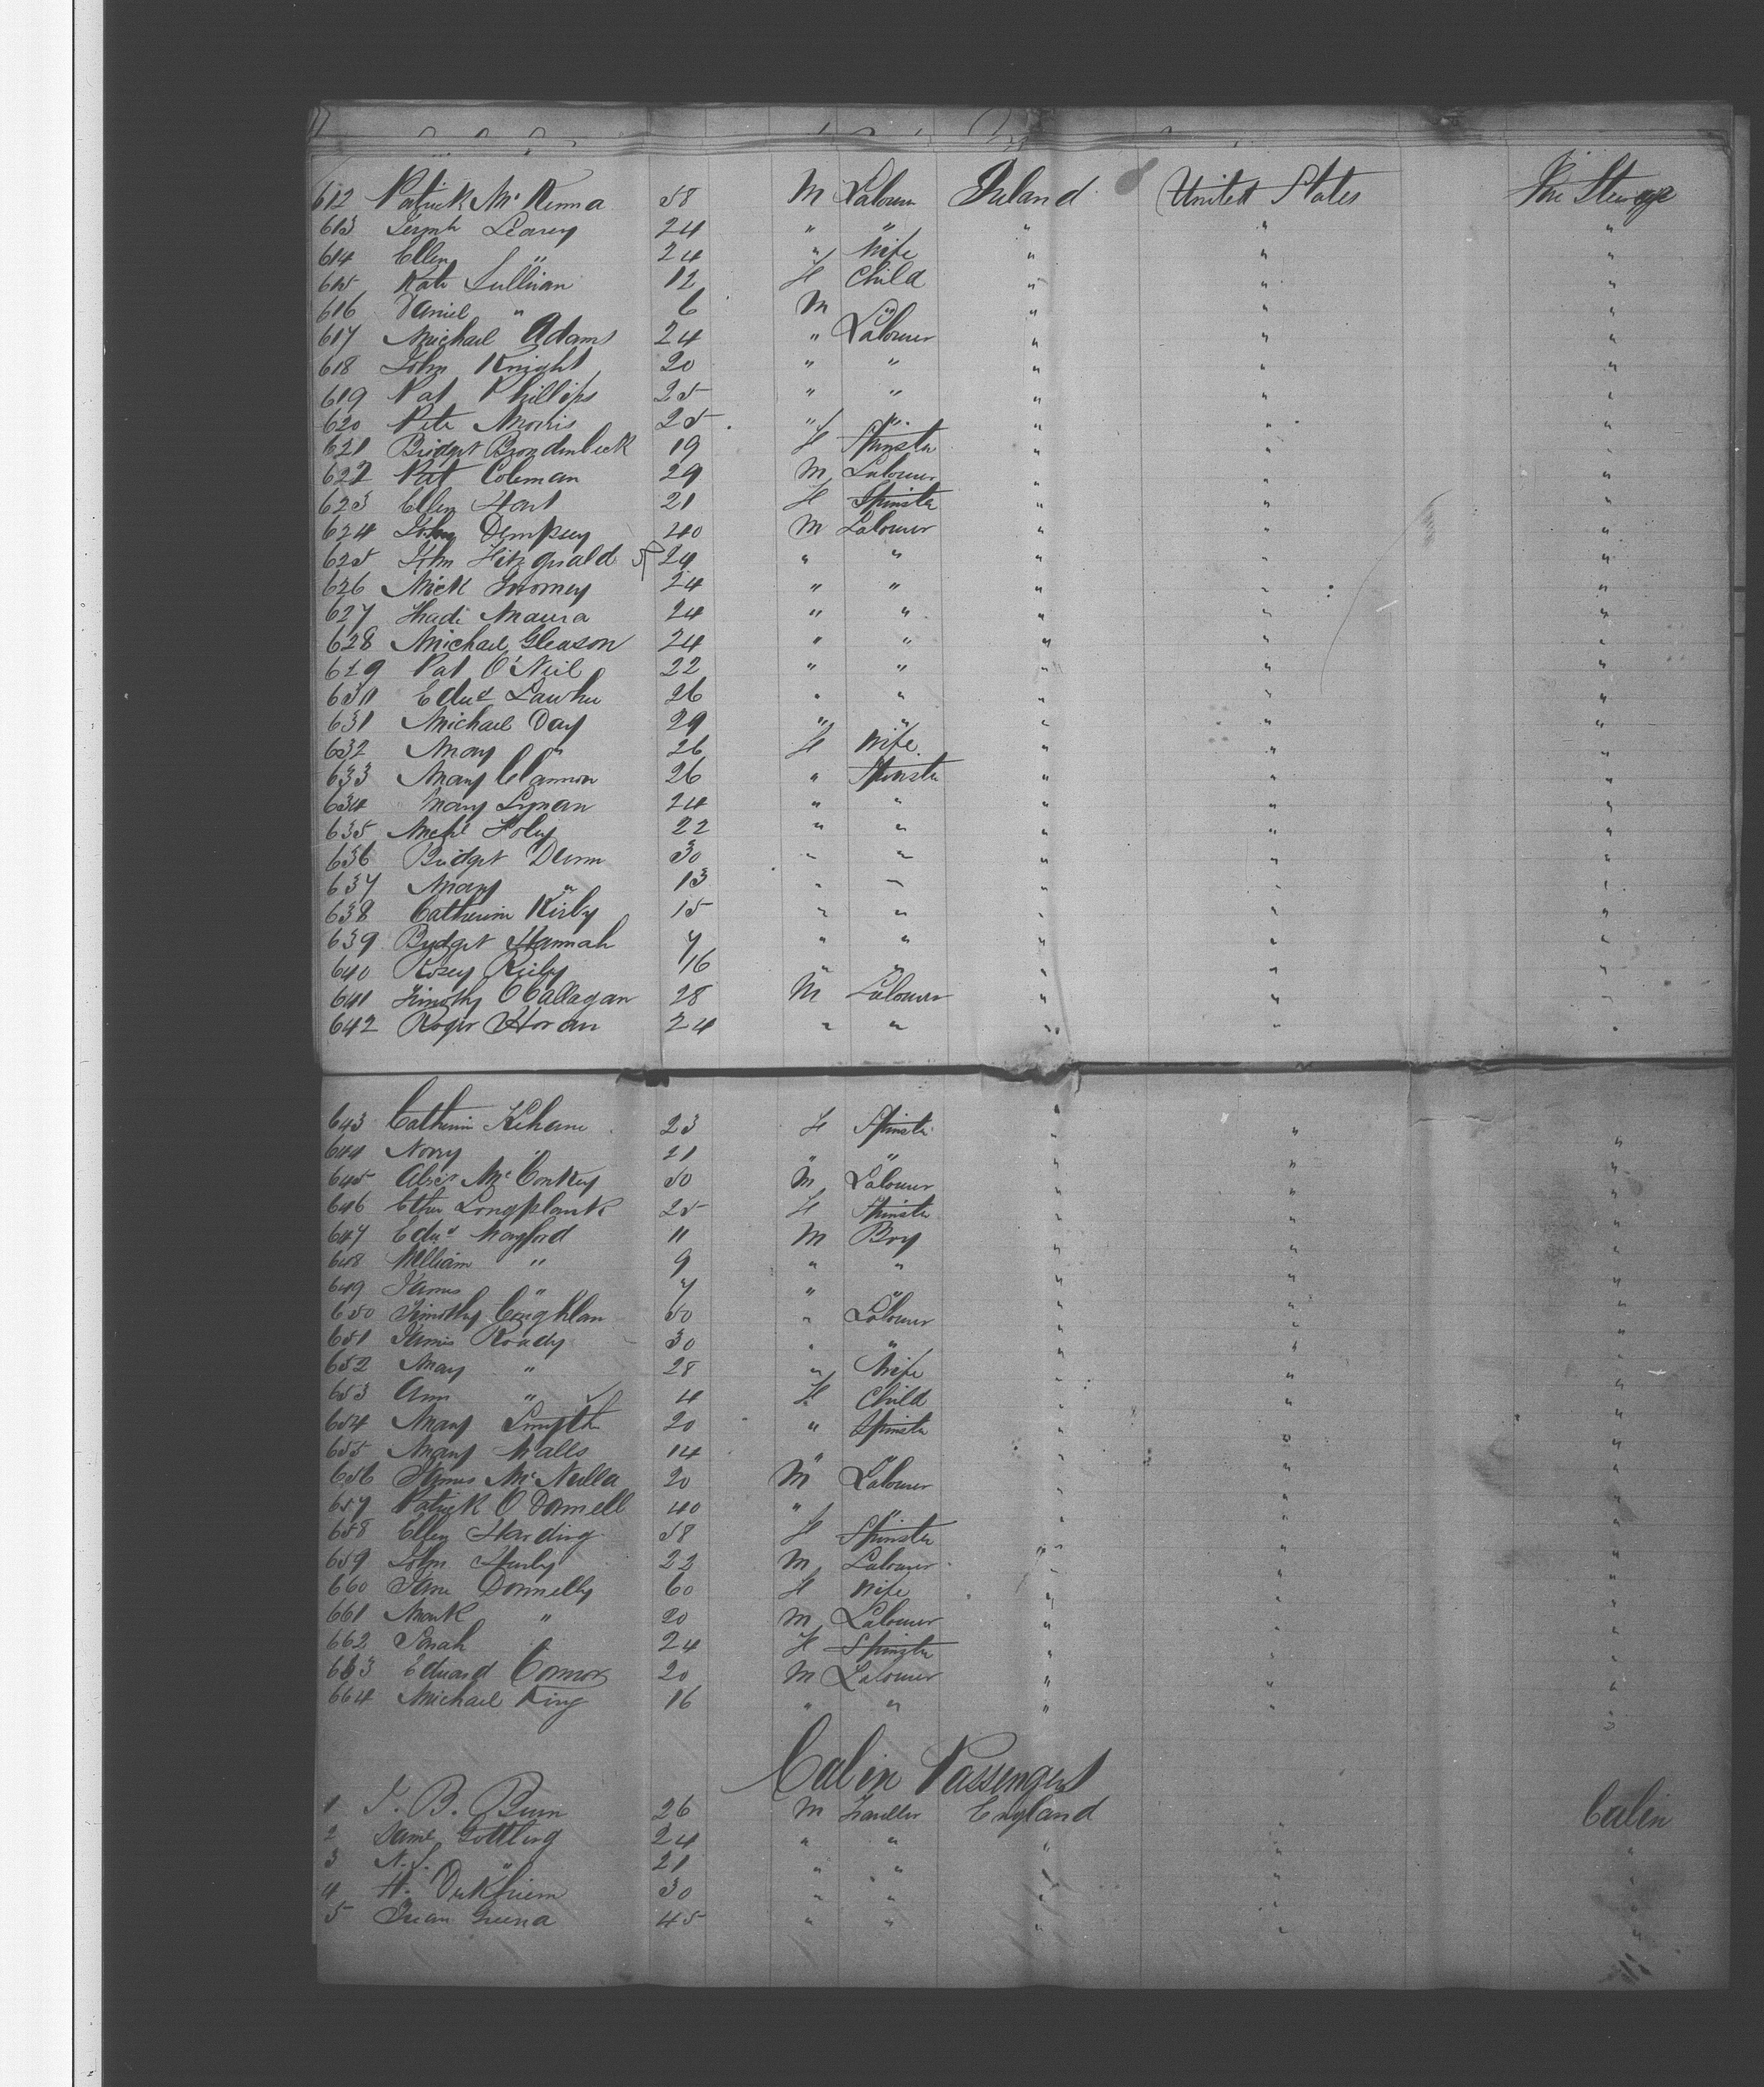 612 Patrick McKenna 58 M Labourer Ireland United States Fore Steerage
613 Learey 24 " " " " "
614 Ellen " 24 " Wife " " "
615 Kate Sullivan 12 F Child " " "
616 Daniel " 6 M " " " "
617 Michael Adams 24 " Labourer " " "
618 John Knight 20 " " " " "
619 Pat Phillips 25 " " " " "
620 Pete Morris 25 " " " " "
621 Bridget 19 F Spinster " " "
622 Pat Coleman 29 M Labourer " " "
623 Ellen Hart 21 F Spinster " " "
624 John Dempsey 40 M Labourer " " "
625 Jhn Fitzgerald 29 " " " " "
626 Mick Twomey 24 " " " " "
627 Thade Maura 24 " " " " "
628 Michael Gleason 24 " " " " "
629 Pat O'Neil 22 " " " " "
630 Edwd 26 " " " " "
631 Michael Day 29 " " " " "
632 Mary " 26 F Wife " " "
633 Mary 26 " Spinster " " "
634 Mary Lynan 24 " " " " "
635 Foley 22 " " " " "
636 Bridget Dunn 30 " " " " "
637 Mary " 13 " " " " "
638 Catherine Kirby 15 " " " " "
639 Bydget Hannah 7 " " " " "
640 Rosey Reily 16 " " " " "
641 Timothy OCallagan 28 M Labourer " " "
642 Roger Horan 24 " " " " "
643 Catherine Kehane 23 F Spinster " " "
644 Nory " 21 " " " " "
645 McConkey 50 M Labourer " " "
646 Longplank 25 F Spinster " " "
647 Edwd Wayford 11 M Boy " " "
648 William " 9 " " " " "
649 James " 7 " " " " "
650 Timothy Coughlan 50 " Labourer " " "
651 James Roady 30 " " " " "
652 Mary " 28 " Wife " " "
653 Ann " 4 F Child " " "
654 Mary Smyth 20 " Spinster " " "
655 Mary Walls 14 " " " " "
656 James McNulla 20 M Labourer " " "
657 Patrick ODonnell 40 " " " " "
658 Ellen Harding 58 F Spinster " " "
659 John Hurly 22 M Labourer " " "
660 Jane Donnelly 60 F Wife " " "
661 Mark " 20 M Labourer " " "
662 Sarah " 24 F Spinster " " "
663 Edward Connor 20 M Labourer " " "
664 Michael King 16 " " " " "
Cabin Passengers
1 J. B. Burn 26 M Traveller England " Cabin
2 Gottling 24 " " " " "
3 N. S. " 21 " " " " "
4 H. 30 " " " " "
5 Juan 45 " " " " "